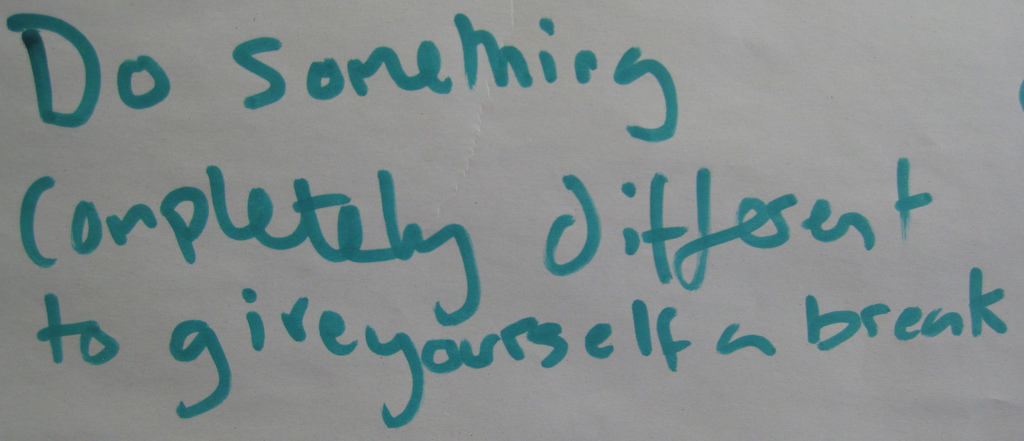 Do something
Completely different
to give yourself a break